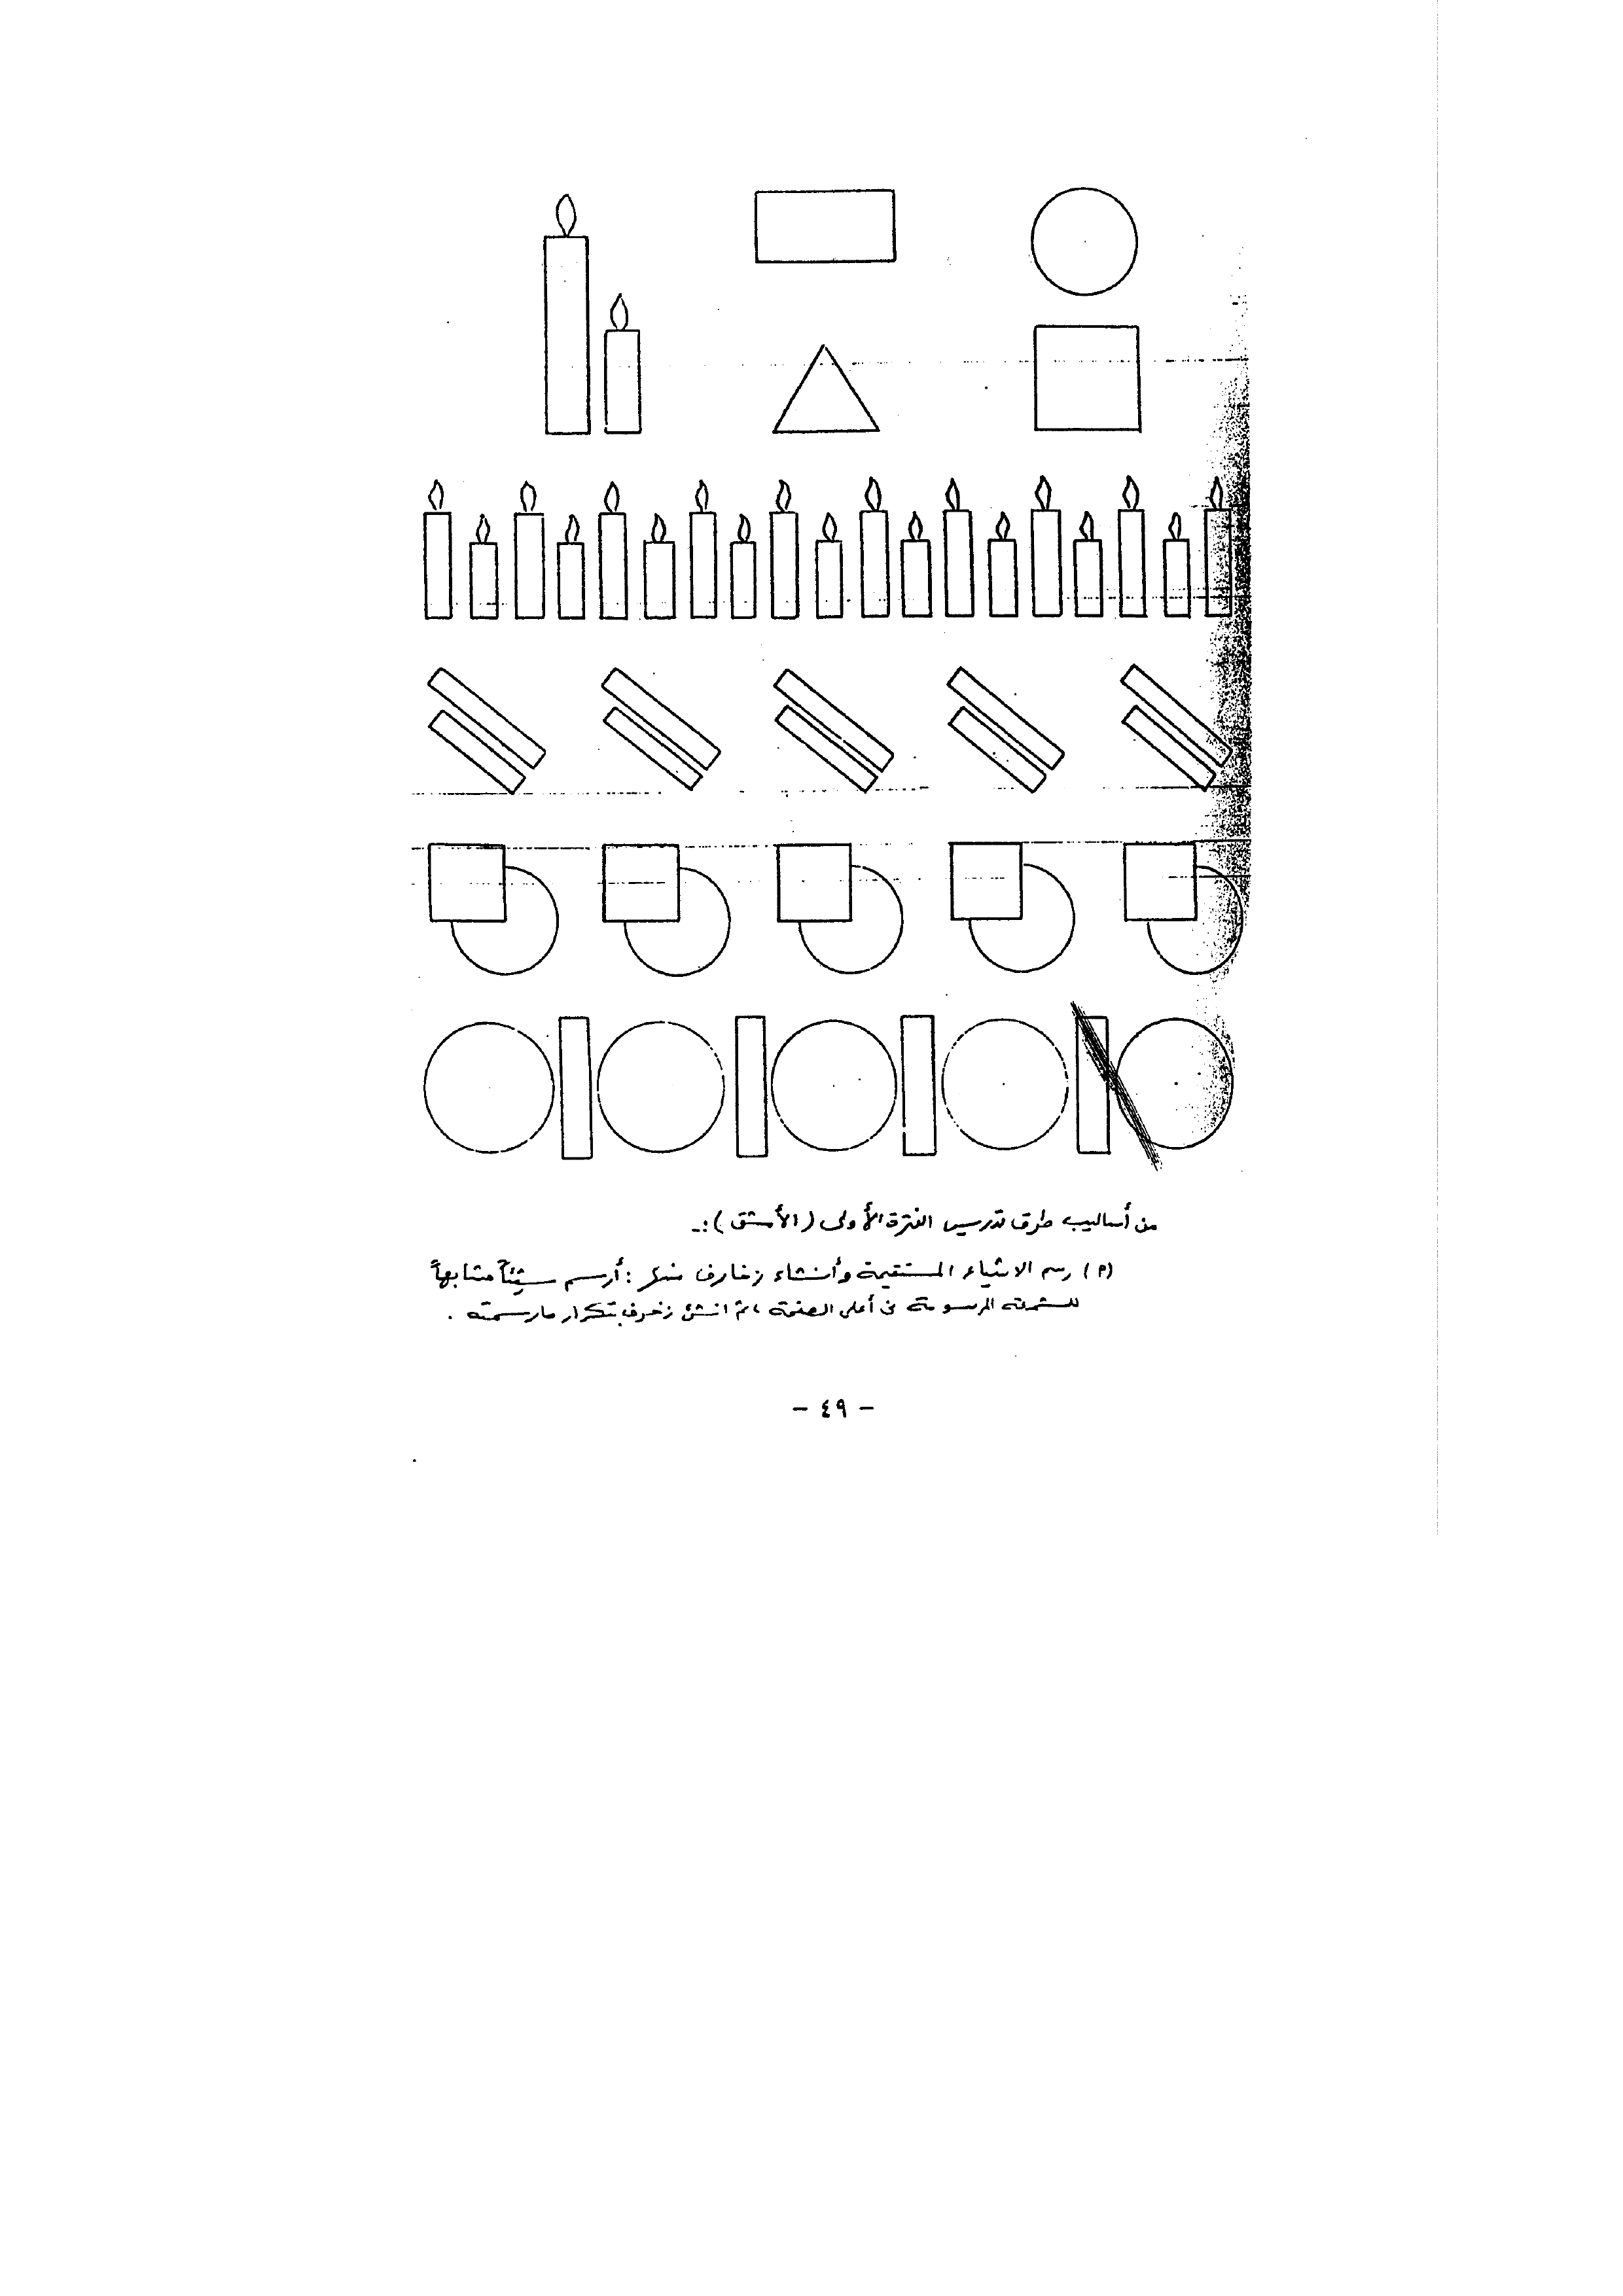 من أساليب طرق تدريس الفترة الأولى (الأمشق) :ـ
(م) رسم الاشياء المستقيمة وأنشاء زخارف منها : أرسم شيئاً مشابهاً
للشمعة المرسومة في أعلى الصفحة ، ثم انشئ زخرف بتكرار مارسمته .
- ٤٩ -